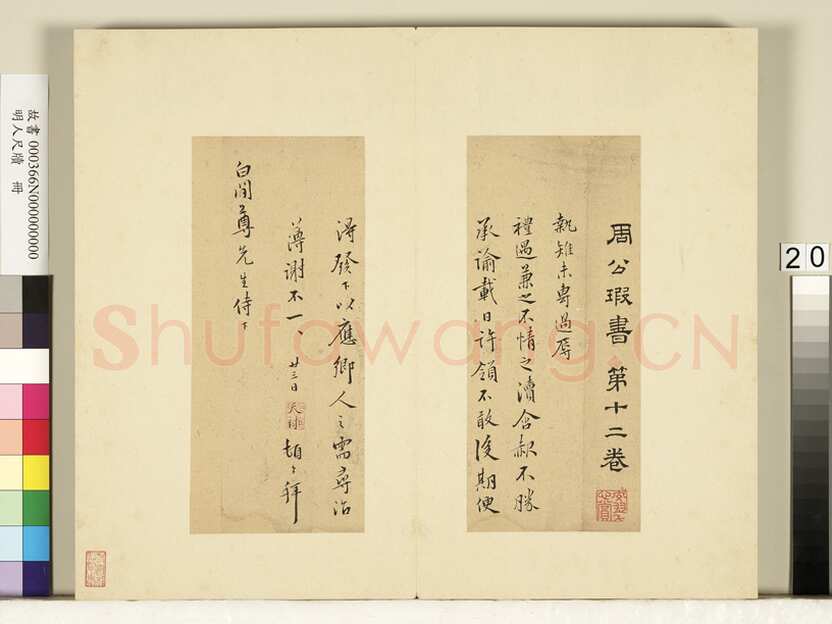 周公瑕書 第十二卷
執雉未專過辱
禮遇兼之不情之瀆含赧不勝
承諭載日許領不敢後期便
得發下以應鄉人之需專治
薄謝不一
廿三日
天球
頓首拜
白閒尊先生侍下
故書 000366N000000000
明人尺牘 冊
20
Shufawang.CN